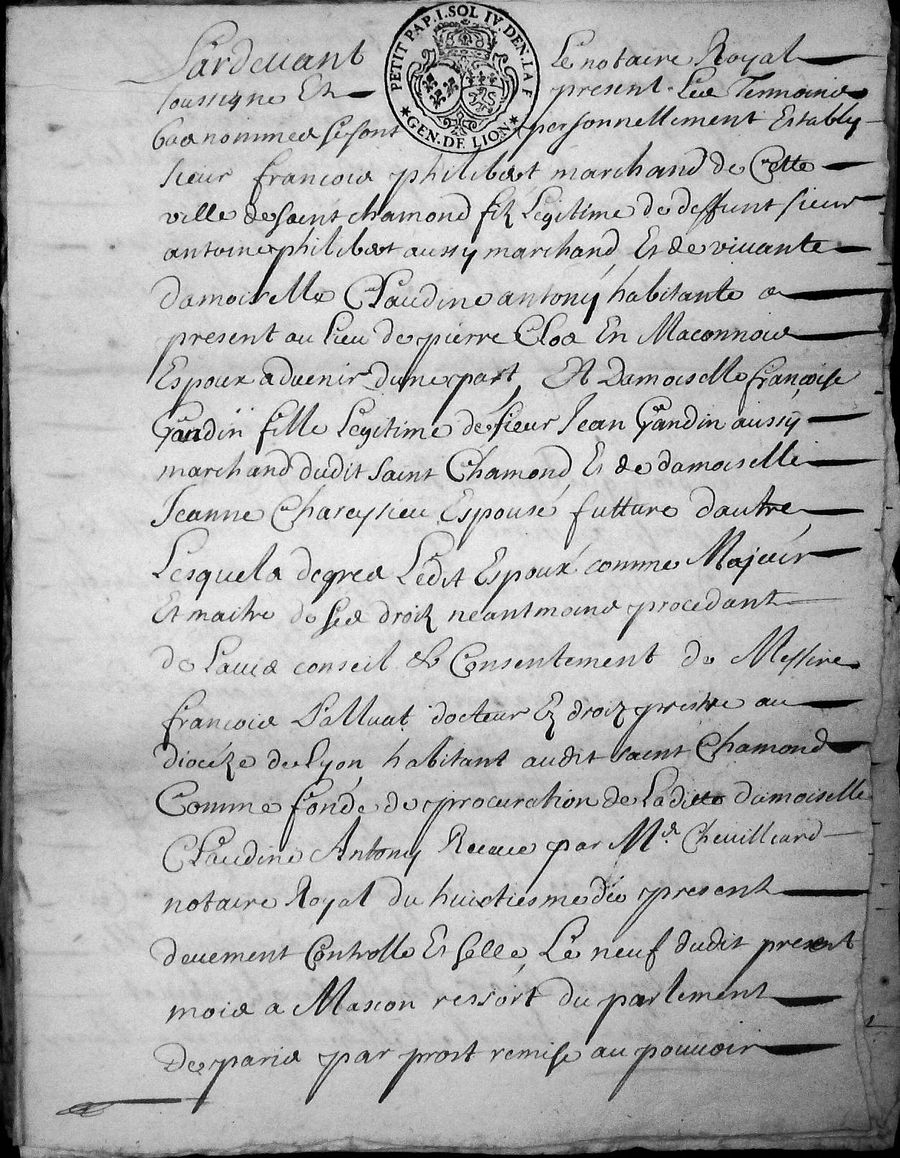 PETIT PAP. I. SOL IV. DEN. LA F
GEN. DE LION
Pardevant Le notaire Royal
soussigne Et present Les Temoins
bas nommes se sont personnellement Establys
sieur francois philibert marchand de Cette
ville de saint chamond fils Legitime de deffunt sieur
antoine philibert aussy marchand Et de vivante
damoiselle Claudine antony habitante a
present au Lieu de pierre Clos En Maconnois
Espoux advenir dune part, Et Damoiselle francoise
Grandin fille Legitime de sieur Jean Grandin aussy
marchand dudit saint Chamond Et de damoiselle
Jeanne Chareysieu Espouse future d'autre
Lesquels de gres Ledit Espoux comme Majeur
Et maitre de ses droitz neantmoins procedant
de Lavis conseil & Consentement de Messire
francois Palluat docteur Ez droitz prestre au
dioceze de Lyon habitant audit saint Chamond
Comme fondé de procuration de Laditte damoiselle
Claudine Antony Receue par Me. Chevilliard
notaire Royal du huictiesme du present
deuement Controlle Et sellé, Le neuf dudit present
mois a Mascon ressort du parlement
De paris par prost remise au pouvoir